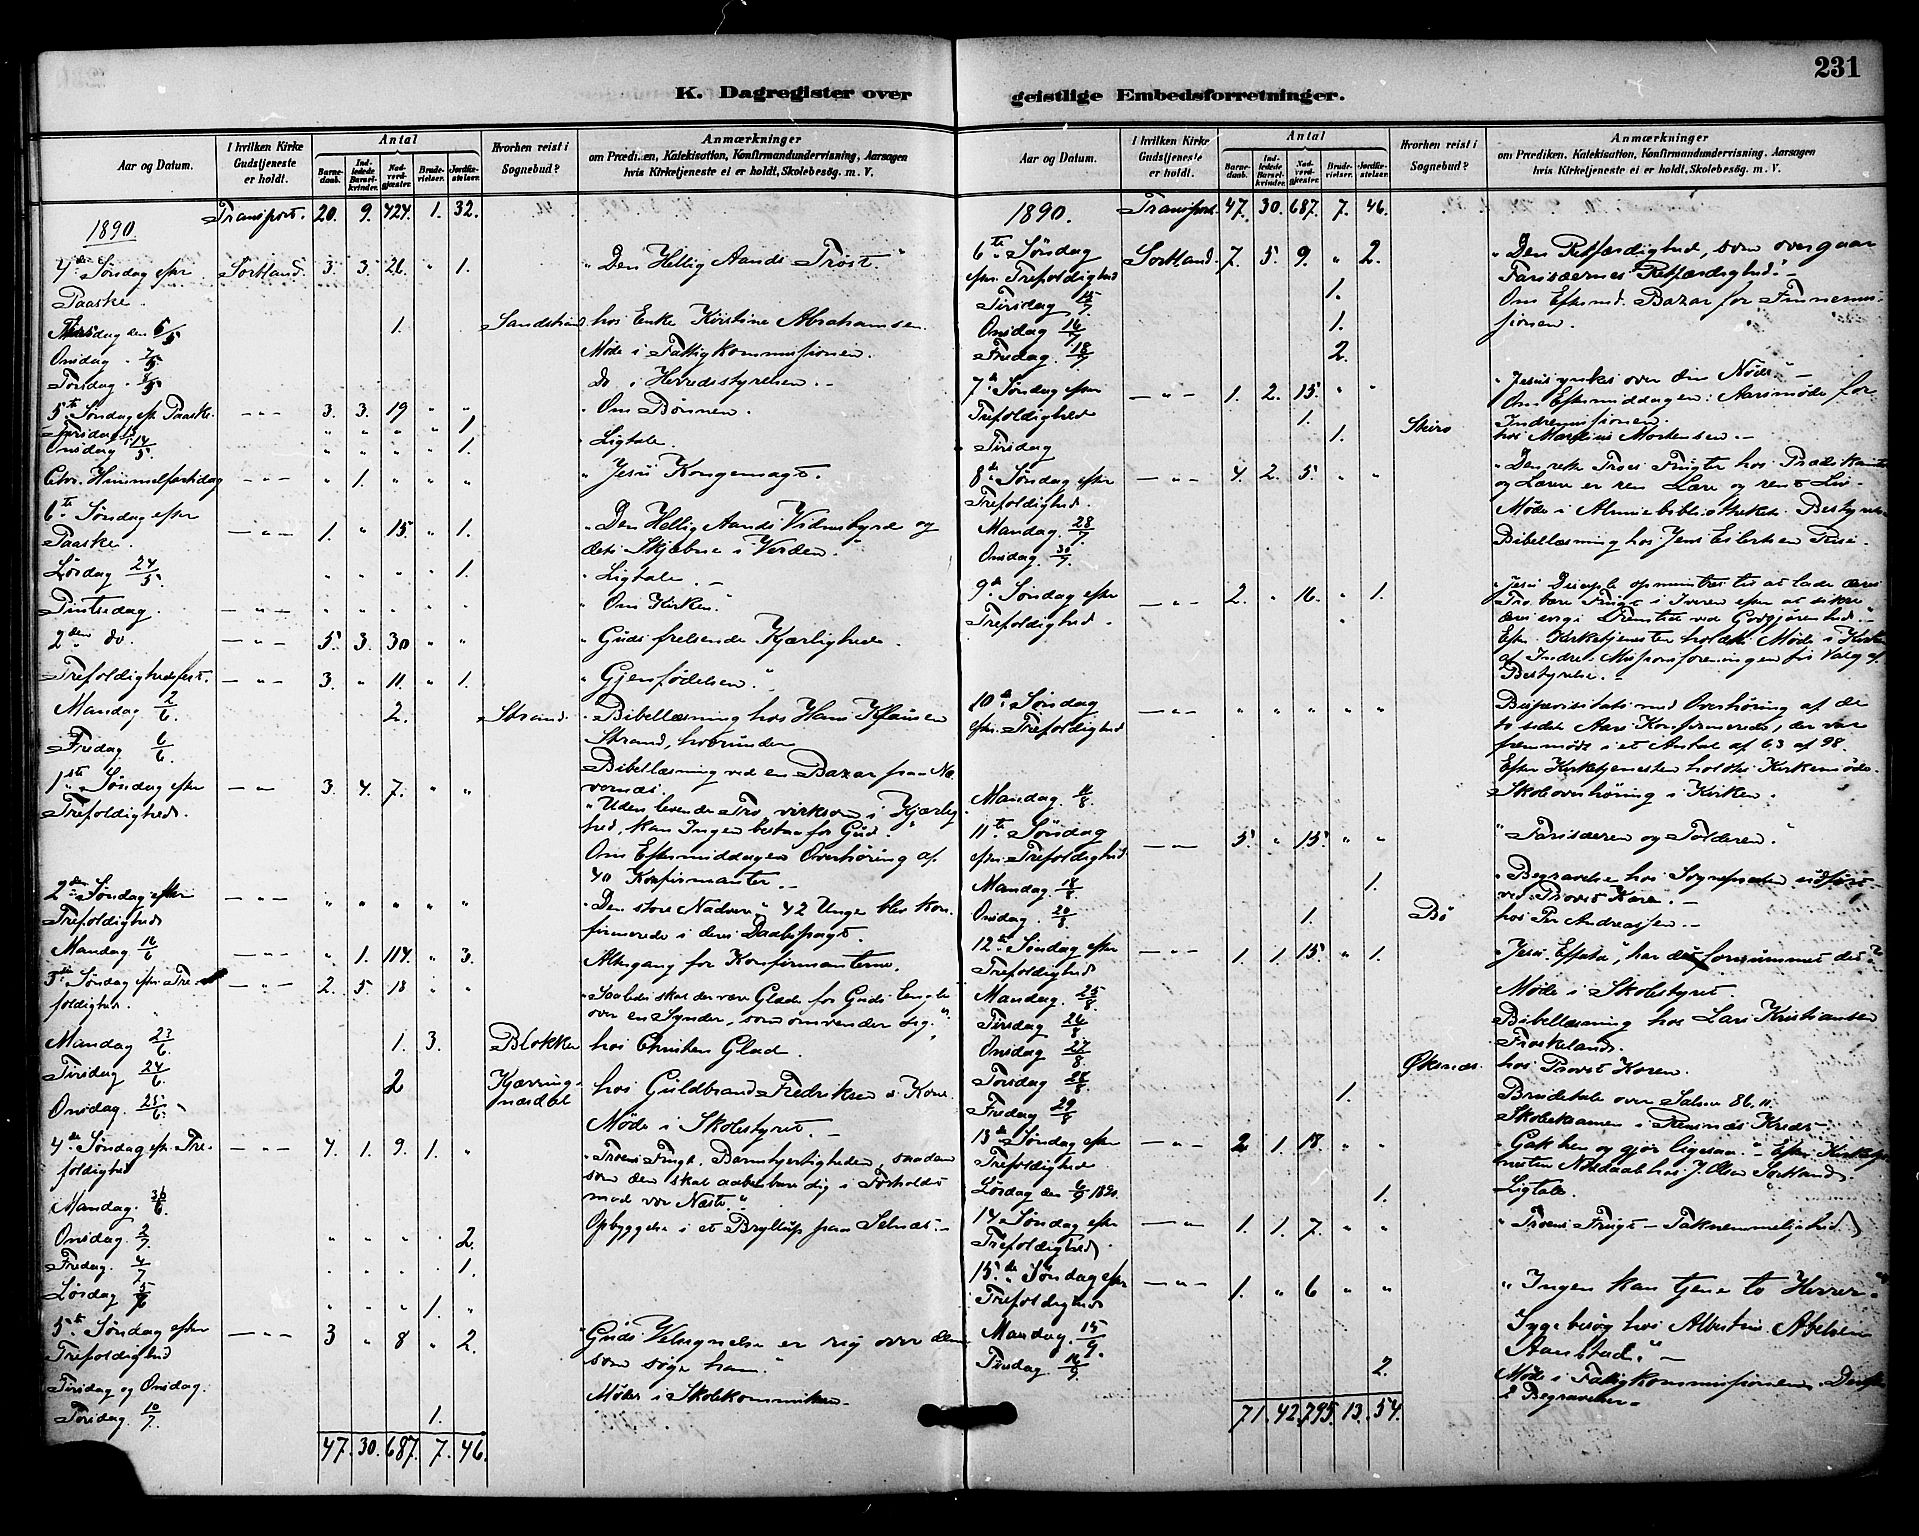 K. Dagregister over
Aar og Datum.
I hvilken Kirke Gudstjeneste er holdt.
Antal
Barnedaab.
Indledede Barselkvinder.
Nadverdgjæster.
Brudevielser.
Jordfæstelser.
Hvorhen reist i Sognebud?
Anmærkninger
om Prædiken, Katekisation, Konfirmandundervisning, Aarsagen
hvis Kirketjeneste ei er holdt, Skolebesøg. m. V.
1890. Transport. 20. 9. 424. 1. 32.
4de Søndag efter Paaske. Sortland. 3. 3. 26. " 1. "Den Hellig Aands Trøst."
5/5 1. Sandstrand hos Enke Kirstine Abrahamsen.
Onsdag 7/5 Møde i Fattigkommissionen.
Torsdag 8/5 Do i Herredsstyrelsen.
5te Søndag eft. Paaske. — " — 3. 3. 19 " " "Om Bønnen.
" " " " 1
Onsdag 14/5. " " " " 1. "Ligtale.
Chr. Himmelfartsdag — " — " 1. " " " "Jesu Kongemagt.
6te Søndag efter Paaske. — " — 1. " 15. " 1. "Den Hellig Aands Vidnesbyrd og
dets Skjæbne i Verden."
Lørdag 24/5. " " " " 1. "Ligtale. —
Pintsedag. — " — " " " " " "Om Kirken."
2den do. — " — 5. 3. 30 " " "Guds frelsende Kjærlighed.
Trefoldighedsfest. — " — 3. " 11. " 1. "Gjenfødelsen."
Mandag 2/6. 2. Strand. Bibellæsning hos Hans Klausen
Strand, herunder
Fredag 6/6 Bibellæsning ved en Bazar paa
1ste Søndag efter Trefoldighed. — " — 3. 4. 7. " "
"Uden levende Tro, virksom i Kjærlig-
hed, kan Ingen bestaa for Gud."
Om Eftermiddagen Overhøring af
40 Konfirmanter. —
2den Søndag efter Trefoldighed — " — " " " " " "Den store Nadver." 42 Unge blev kon-
firmerede i deres Daabspagt.
Mandag 16/6 — " — " 1. 114. " 3. Altergang for Konfirmanterne.
3die Søndag eft. Trefoldighed. — " — 2. 5. 18 " " "Saaledes skal der være Glæde for Guds Engle
over en Synder, som omvender sig."
Mandag 23/6 1. 3. Blokken hos Christen Glad.
Tirsdag 24/6 2 Kjærringnæsdal hos Guldbrand Fredriksen
Onsdag 25/6 Møde i Skolestyret. —
4de Søndag eft. Trefoldighed — " — 4. 1. 9. 1. " "Troens Frugt, Barmhjertigheden, saadan
som den skal aabenbare sig i Forholdet
med vor Næste."
Mandag 30/6. Opbyggelse i et Bryllup paa Selnæs. —
Onsdag 2/7 " " " " 2.
Fredag. 4/7 " " " " 1.
Lørdag 5/7 " " " 1. "
5te Søndag efter Trefoldighed — " — 3 " 8 " 2. "Guds Velsignelse er rig over dem
som søge ham."
Tirsdag og Onsdag. Møder i Skolekommissionen. —
Torsdag. 10/7. 1.
47. 30. 687. 7. 46.
geistlige Embedsforretninger.
231
Aar og Datum.
I hvilken Kirke Gudstjeneste er holdt.
Antal
Barnedaab.
Indledede Barselkvinder.
Nadverdgjæster.
Brudevielser.
Jordfæstelser.
Hvorhen reist i Sognebud?
Anmærkninger
om Prædiken, Katekisation, Konfirmandundervisning, Aarsagen
hvis Kirketjeneste ei er holdt, Skolebesøg. m. V.
1890. Transport 47. 30. 687. 7. 46.
6te Søndag efter Trefoldighed Sortland. 7. 5. 9. " 2. "Den Retfærdighed, som overgaar
Farisæernes Retfærdighed." —
Tirsdag 15/7 1. Om Efterm. Bazar for Finnemis-
sionen.
Onsdag 16/7 1.
Fredag. 18/7 2.
7de Søndag efter Trefoldighed — " — 1. 2. 15. " " "Jesus ynkes over din Nød." —
Om Eftermiddagen Aarsmøde for
Indremissionen.
1. Skiro hos Martius Mortensen. —
Tirsdag 1.
8de Søndag efter Trefoldighed. — " — 4. 2. 5. " " "Den rette Troes Frugter hos Prædikanter
og Lærere er ren Lære og rent Liv.
Mandag 28/7. Møde i Almuebibliothekets Bestyrelse
Onsdag 30/7. Bibellæsning hos Jens Eilertsen
9de Søndag efter Trefoldighed. — " — 2. " 16. " 1. "Jesu Disciple opmuntres til at lade deres
Tro bære Frugt i Iveren efter at sikre
deres evige Fremtid ved Godgjørenhed." —
Efter Kirketjenesten holdtes Møde i Kirken
af Indre Missionsforeningen for Valg af
Bestyrelse. —
10de Søndag efter Trefoldighed — " — " " " " " Bispevisitats med Overhøring af de
to sidste Aars Konfirmerede, der var
fremmødt i et Antal af 63 af 98.
Efter Kirketjenesten holdtes Kirkemøde.
Mandag 11/8. Skoleoverhøring i Kirken.
11te Søndag efter Trefoldighed — " — 5. " 15. " " "Farisæeren og Tolderen."
Mandag 18/8 1. "Begravelse hos Sognepræsten udført
ved Provst Koren. —
Onsdag. 20/8 1. Bø hos Per Andreassen —
12te Søndag efter Trefoldighed — " — 1. 1. 15. " 1. "Jesu Effata", har du fornummet det?
Mandag 25/8. Møde i Skolestyret.
Tirsdag 26/8 Bibellæsning hos Lars Kristiansen
Frøskeland.
Onsdag 27/8 Øksnæs. hos Provst Koren.
Torsdag 28/8 1. Brudetale over Salme 86, 11.
Fredag 29/8 Skoleexamen i Kreds.
13de Søndag efter Trefoldighed — " — 2 1. 18 " " "Gak hen og gjør ligesaa." Efter Kirketje-
nesten Nøddaab hos J. Olsen Sortland.
Lørdag den 6/9 1890. 1. Ligtale.
14 Søndag efter Trefoldighed — " — 1. 1. 7. " " "Troens Frugt — Taknemmelighed
15de Søndag efter Trefoldighed — " — 1. " 6 " " "Ingen kan tjene to Herrer."
Mandag. 15/9. Sygebesøg hos Albertine Abelsen
Aanstad." —
Tirsdag 16/9 2. Møde i Fattigkommissionen.
2 Begravelser. —
71. 42. 795. 13. 54.